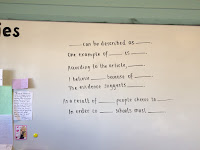 ies
____ can be described as ____
One example of ____ is ____
According to the article, ____
I believe ____ because of ____
The evidence suggests ____
As a result of ____ people chose to ____
In order to ____ schools must ____